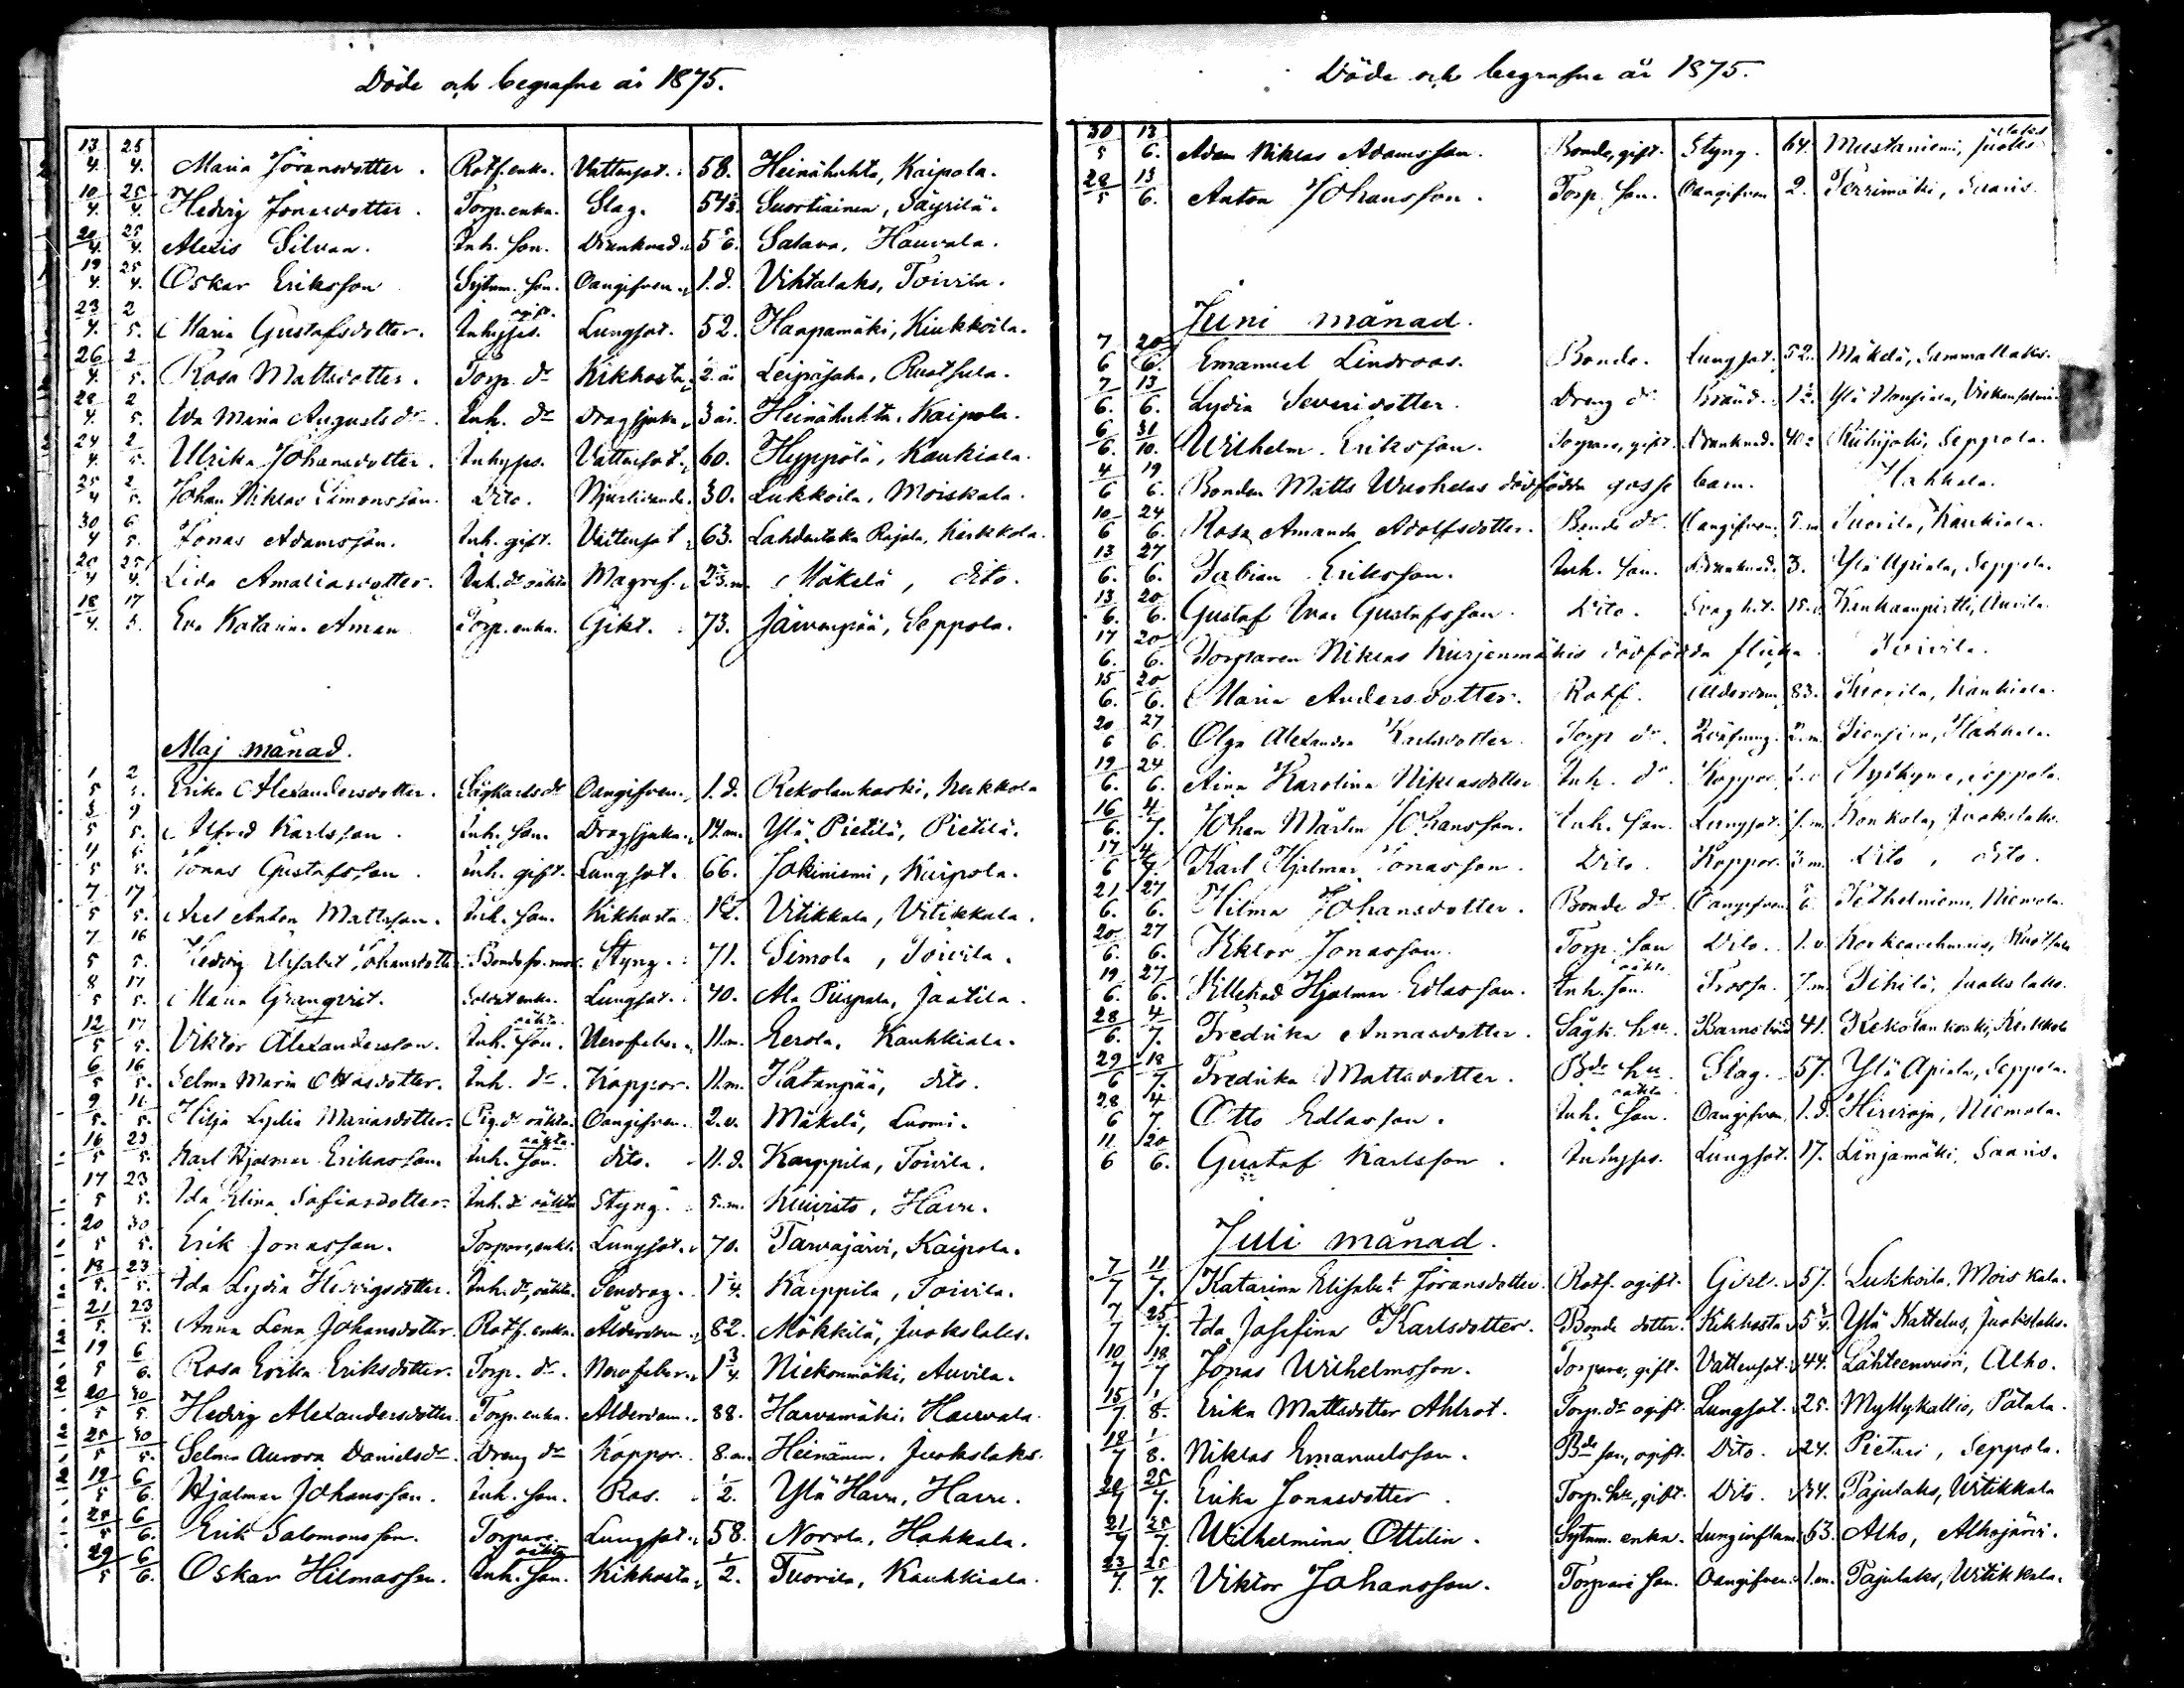 Döde och begrafne år 1875.
13/4. 25/4. Maria Göransdotter. Rotf. enka. Vattusot. 58. Heinähuhta, Kaipola.
10/4. 25/4. Hedvig Jonasdotter. Torp. enka. Slag. 54 Suortiainen, Säyrilä.
20/4. 25/4. Alexis Silvan. Inh. son. Drunknad. Salava, Hauvala.
19/4. 25/4. Oskar Eriksson Sytnm. son. Oangifven. 1. d. Vihtalaks, Toivila.
23/4. 2/5. Maria Gustafsdotter. Inhyses. ogift. Lungsot. 52. Haapamäki, Kiukkoila.
26/4. 2/5. Rosa Mattsdotter. Torp. dr Kikhosta 2. år Leipäjaha, Ruotsula.
28/4. 2/5. Eva Maria Augustsdr. Inh. dr Dragsjuka 3 år. Heinähuhta, Kaipola.
24/4. 2/5. Ulrika Johansdotter. Inhyses. Vattusot. 60. Hyppölä, Kaukiala.
25/4 2/5. Johan Niklas Simonsson. Dito. Njurlidande. 30. Lukkoila, Moiskala.
30/4 6/5. Jonas Adamsson. Inh. gift. Vattusot 63. Lahdentaka Rajala, Kerkkola.
20/4 25/4. Lida Amaliasdotter. Inh. dr oäkta Magref. Mäkelä, dito.
18/4. 17/5. Eva Katarina Åman Torp. enka. Gikt. 73. Järvenpää, Seppola.
Maj månad.
1/5 2/5. Erika Alexandersdotter. Sågkarls dr Oangifven. 1. d. Rekolankoski, Kerkkola
3/5 9/5. Alfred Karlsson. Inh. son. Dragsjuka. 14. m. Ylä Pietilä, Pietilä.
4/5 6/5. Jonas Gustafsson Inh. gift. Lungsot. 66. Jokiniemi, Kaipola.
7/5 17/5. Axel Anton Mattsson. Inh. son. Kikhosta Vitikkala, Vitikkala.
7/5 16/5. Hedvig Elisabet Johansdotter. Bonde fr. mor. Styng. 71. Simola, Toivila.
8/5 17/5. Maria Granqvist. Soldat enka. Lungsot. 40. Ala Piispala, Jaatila.
12/5 17/5. Viktor Alexandersson. Inh. son. oäkta. Nervfeber. 11. m. Eerola, Kauhkiala.
6/5 16/5. Selma Maria Ottosdotter. Inh. dr. Koppor. 11. m. Katanpää, dito.
9/5. 16/5. Hilja Lydia Mariasdotter. Pig. dr oäkta Oangifven. 2. v. Mäkelä, Luomi.
16/5 23/5. Karl Hjalmar Erikasson. Inh. son. oäkta. dito. 11. d. Karppila, Toivila.
17/5 23/5. Ida Elina Sofiasdotter. Inh. dr oäkta Styng. 5. m. Kuivisto, Harre.
20/5 30/5. Erik Jonasson. Torpare, enkl. Lungsot. 70. Tarvajärvi, Kaipola.
18/5. 23/5. Ida Lydia Hedvigsdotter. Inh. dr, oäkta. Sendrag. 1 1/4. Karppila, Toivila.
21/5. 23/5. Anna Lena Johansdotter. Rotf. enka. Ålderdom. 82. Mökkilä, Juokslaks.
19/5 6/6. Rosa Erika Eriksdotter. Torp. dr. Nervfeber. 1 3/4. Niekonmäki, Auvila.
20/5 30/5. Hedvig Alexandersdotter. Torp. enka. Ålderdom. 88. Harvamäki, Haurvala.
25/5 30/5. Selma Aurora Danielsdr. Dreng dr Koppor. 8. m. Heinänen, Juokslaks.
19/5 6/6. Hjalmar Johansson. Inh. son. Ros. 1/2. Ylä Harre, Harre.
25/5 6/6. Erik Salomonsson. Torpare. Lungsot. 58. Norola, Hahkala.
29/5 6/6. Oskar Hilmasson. Inh. son. oäkta Kikhosta 1/2. Tuorila, Kauhkiala.
Döde och begrafne år 1875.
30/5 13/6. Adam Niklas Adamsson. Bonde, gift. Styng. 64. Mustaniemi, Juokslaks
28/5 13/6. Anton Johansson. Torp. son. Oangifven 2. Perrimäki, Saaris.
Juni månad.
7/6 20/6. Emanuel Lindroos. Bonde. Lungsot. 52. Mäkelä, Sammallaks.
7/6. 13/6. Lydia Severidotter. Dreng dr. Bränd. 1 1/2.
6/6. 31/10. Wilhelm Eriksson. Torpare, gift. Drunknad. 40. Riihijoki, Seppola.
4/6 19/6. Bonden Matts Wuohelas dödfödda gosse barn. Hahkala.
10/6 24/6. Rosa Amanda Adolfsdotter. Bonde dr. Oangifven. 5. m Tuorila, Kaukiala.
13/6. 27/6. Fabian Eriksson. Inh. son. Drunknad. 3. Ylä Apiala, Seppola.
13/6. 20/6. Gustaf Ivar Gustafsson. Dito. 15. Kankaanpirtti, Auvila.
17/6. 20/6. Torparen Niklas Kurjenmäkis dödfödda flicka. Toivila.
15/6. 20/6. Maria Andersdotter. Rotf. Ålderdom 83. Tuorila, Kaukiala.
20/6 27/6. Olga Alexandra Karlsdotter. Torp dr. 2. m. Hahkala.
19/6. 24/6. Aina Karolina Niklasdotter Inh. dr. Koppor. Seppola.
16/6. 4/7. Johan Mårten Johansson. Inh. son. Lungsot. Konkola, Juokslaks.
17/6 4/7. Karl Hjalmar Jonasson Dito. Koppor. Dito, dito.
21/6. 27/6. Hilma Johansdotter. Bonde dr. Oangifven Niemola.
20/6. 27/6. Viktor Jonasson. Torp. son Dito. 1. v. Ruotsula
19/6. 27/6. Villehad Hjalmar Edlasson. Inh. son. oäkta Trossn. 7. m Pihilä, Juokslaks.
28/6. 4/7. Fredrika Annasdotter. Sågk. hu. Barnsbörd 41. Rekolankoski, Kerkkola
29/6 18/7. Fredrika Mattsdotter. Bde hu. Slag. 57. Ylä Apiala, Seppola.
28/6 4/7 Otto Edlasson. Inh. son. oäkta Oangifven. 1. d. Hirvioja, Niemola.
11/6 20/6. Gustaf Karlsson. Inhyses. Lungsot. 17. Linjamäki, Saaris.
Juli månad.
7/7 11/7. Katarina Elisabet Göransdotter. Rotf. ogift. 57. Lukkoila, Moiskala.
7/7 25/7. Ida Josefina Karlsdotter. Bonde dotter. Kikhosta 5 1/4. Ylä Nattelus, Juokslaks.
10/7 18/7 Jonas Wilhelmsson. Torpare, gift. Vattusot 44. Lähteenvuori, Alho.
15/7. 1/8. Erika Mattsdotter Ahlrot. Torp. dr ogift. Lungsot. 25. Myllykallio, Pätala.
18/7 1/8. Niklas Emanuelsson. Bde son, ogift. Dito. 24. Pietari, Seppola.
20/7 25/7. Erika Jonasdotter. Torp. hu, gift. Dito. 34. Pajulaks, Witikkala
21/7 25/7. Wilhelmina Ottilin. Sytnm. enka. Lunginflam. 63. Alho, Alhojärvi.
23/7. 25/7. Viktor Johansson. Torpare son. Oangifven. 1. m. Pajulaks, Witikkala.